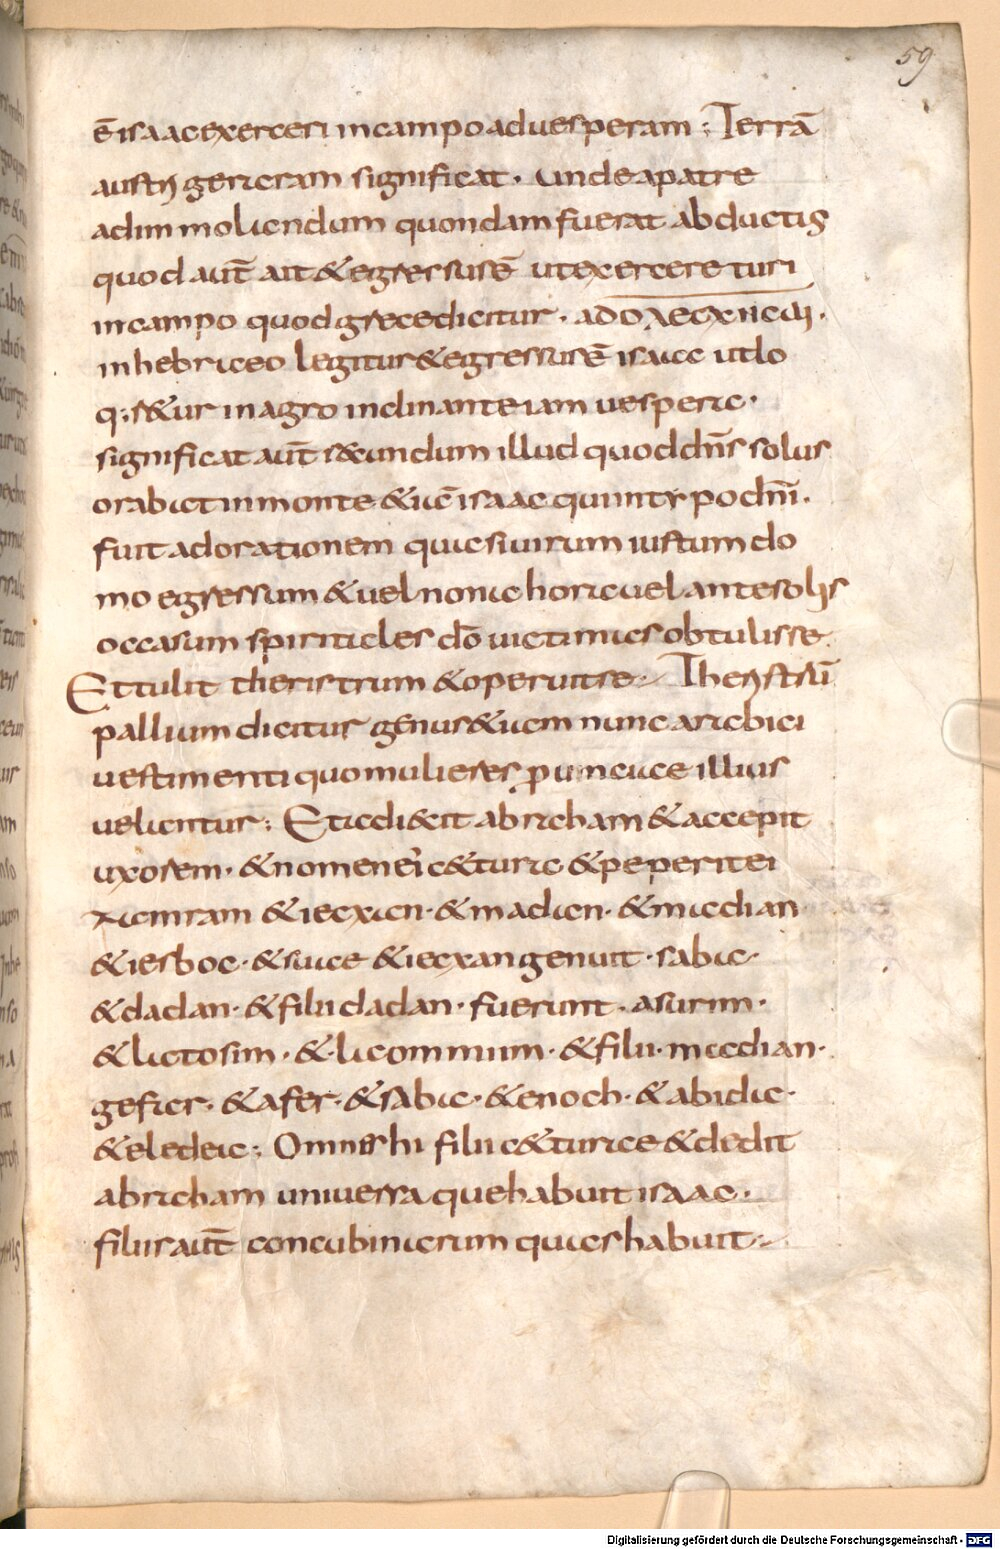 59
ē isaac exerceri in campo ad uesperam : Terrā
austri geraram significat . unde a patre
ad immolandum quondam fuerat abductus
quod aut̄ ait & egressus ē ut exerceretur
in campo quod grece dicitur .
in hebraeo legitur & egressus ē isaac ut lo
q;r&ur in agro inclinante iam uespera .
significat aut̄ secundum illud quod dn̄s solus
orabat in monte &iā isaac qui in typo dn̄i .
fuit ad orationem quasi uirum iustum do
mo egressum & uel nona hora uel ante solis
occasum spiritales do uictimas obtulisse .
Et tulit theristrum & operuit se . Therystrū
pallium dicitur genus &iam nunc arabici
uestimenti quo mulieres prouinciae illius
uelantur : Et adiecit abraham & accepit
uxorem . & nomen ei c&tura & peperit ei
zamram & iecxan . & madan . & madian
& iesboc . & suae & iecxan genuit . saba .
& dadan . & filii dadan . fuerunt . asurim .
& latosim . & laommim . & filii . madian .
gefar . & afer . & saba . & enoch . & abida .
& eledea : Omnes hi filii c&turae & dedit
abraham uniuersa que habuit isaac .
filiis aut̄ concubinarum quas habuit
Digitalisierung gefördert durch die Deutsche Forschungsgemeinschaft - DFG